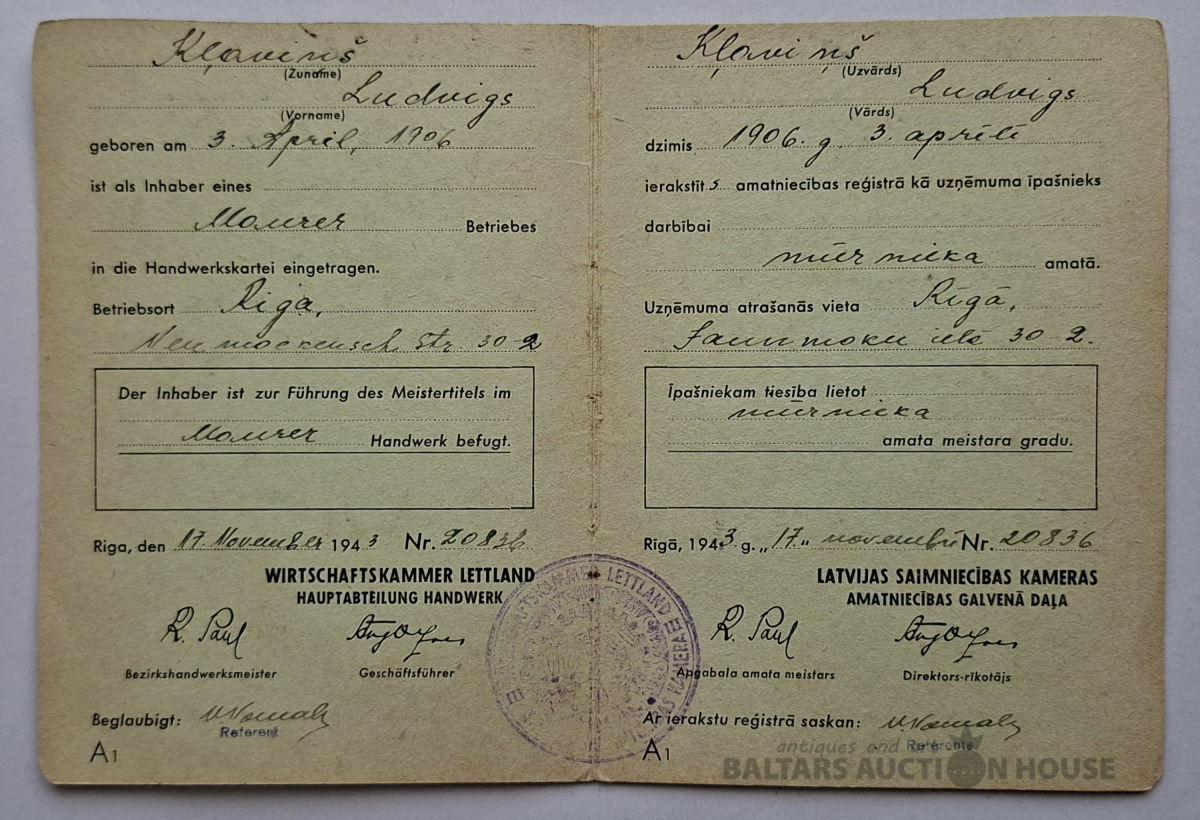 Kļaviņš
(Zuname)
Ludvigs
(Vorname)
geboren am 3. April, 1906
ist als Inhaber eines
Maurer Betriebes
in die Handwerkskartei eingetragen.
Betriebsort Riga,
Str. 30-2
Der Inhaber ist zur Führung des Meistertitels im
Maurer Handwerk befugt.
Riga, den 17. November 1943 Nr. 20836
WIRTSCHAFTSKAMMER LETTLAND
HAUPTABTEILUNG HANDWERK
R. Paul
Bezirkshandwerksmeister Geschäftsführer
Beglaubigt:
Referent
A1
Kļaviņš
(Uzvārds)
Ludvigs
(Vārds)
dzimis 1906. g. 3. aprīlī
ierakstīts amatniecības reģistrā kā uzņēmuma īpašnieks
darbībai
mūrnieka amatā.
Uzņēmuma atrašanās vieta Rīgā,
Jaunmoku ielā 30-2.
Īpašniekam tiesība lietot
mūrnieka
amata meistara gradu.
Rīgā, 1943. g. „17." novembrī Nr. 20836
LATVIJAS SAIMNIECĪBAS KAMERAS
AMATNIECĪBAS GALVENĀ DAĻA
R. Paul
Apgabala amata meistars Direktors-rīkotājs
Ar ierakstu reģistrā saskan:
Referents
A1
WIRTSCHAFTSKAMMER LETTLAND
KAMERA
antiques and art
BALTARS AUCTION HOUSE